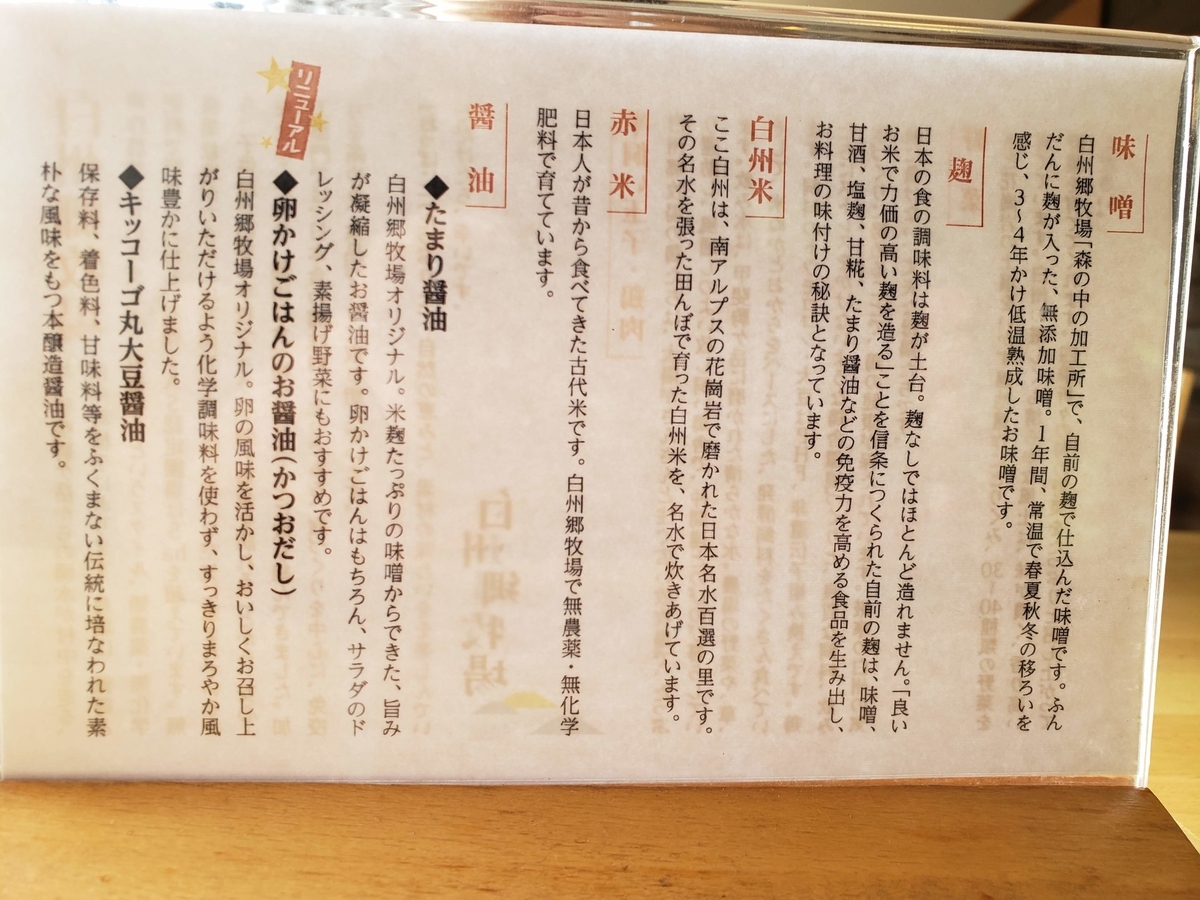 味噌
白州郷牧場「森の中の加工所」で、自前の麹で仕込んだ味噌です。ふん
だんに麹が入った、無添加味噌。1年間、常温で春夏秋冬の移ろいを
感じ、3~4年かけ低温熟成したお味噌です。
麹
日本の食の調味料は麹が土台。麹なしではほとんど造れません。「良い
お米で力価の高い麹を造る」ことを信条につくられた自前の麹は、味噌、
甘酒、塩麹、甘糀、たまり醤油などの免疫力を高める食品を生み出し、
お料理の味付けの秘訣となっています。
白州米
ここ白州は、南アルプスの花崗岩で磨かれた日本名水百選の里です。
その名水を張った田んぼで育った白州米を、名水で炊きあげています。
赤米
日本人が昔から食べてきた古代米です。白州郷牧場で無農薬・無化学
肥料で育てています。
醤油
◆たまり醤油
白州郷牧場オリジナル。米麹たっぷりの味噌からできた、旨み
が凝縮したお醤油です。卵かけごはんはもちろん、サラダのド
レッシング、素揚げ野菜にもおすすめです。
リニューアル
◆卵かけごはんのお醤油(かつおだし)
白州郷牧場オリジナル。卵の風味を活かし、おいしくお召し上
がりいただけるよう化学調味料を使わず、すっきりまろやか風
味豊かに仕上げました。
◆キッコーゴ丸大豆醤油
保存料、着色料、甘味料等をふくまない伝統に培なわれた素
朴な風味をもつ本醸造醤油です。